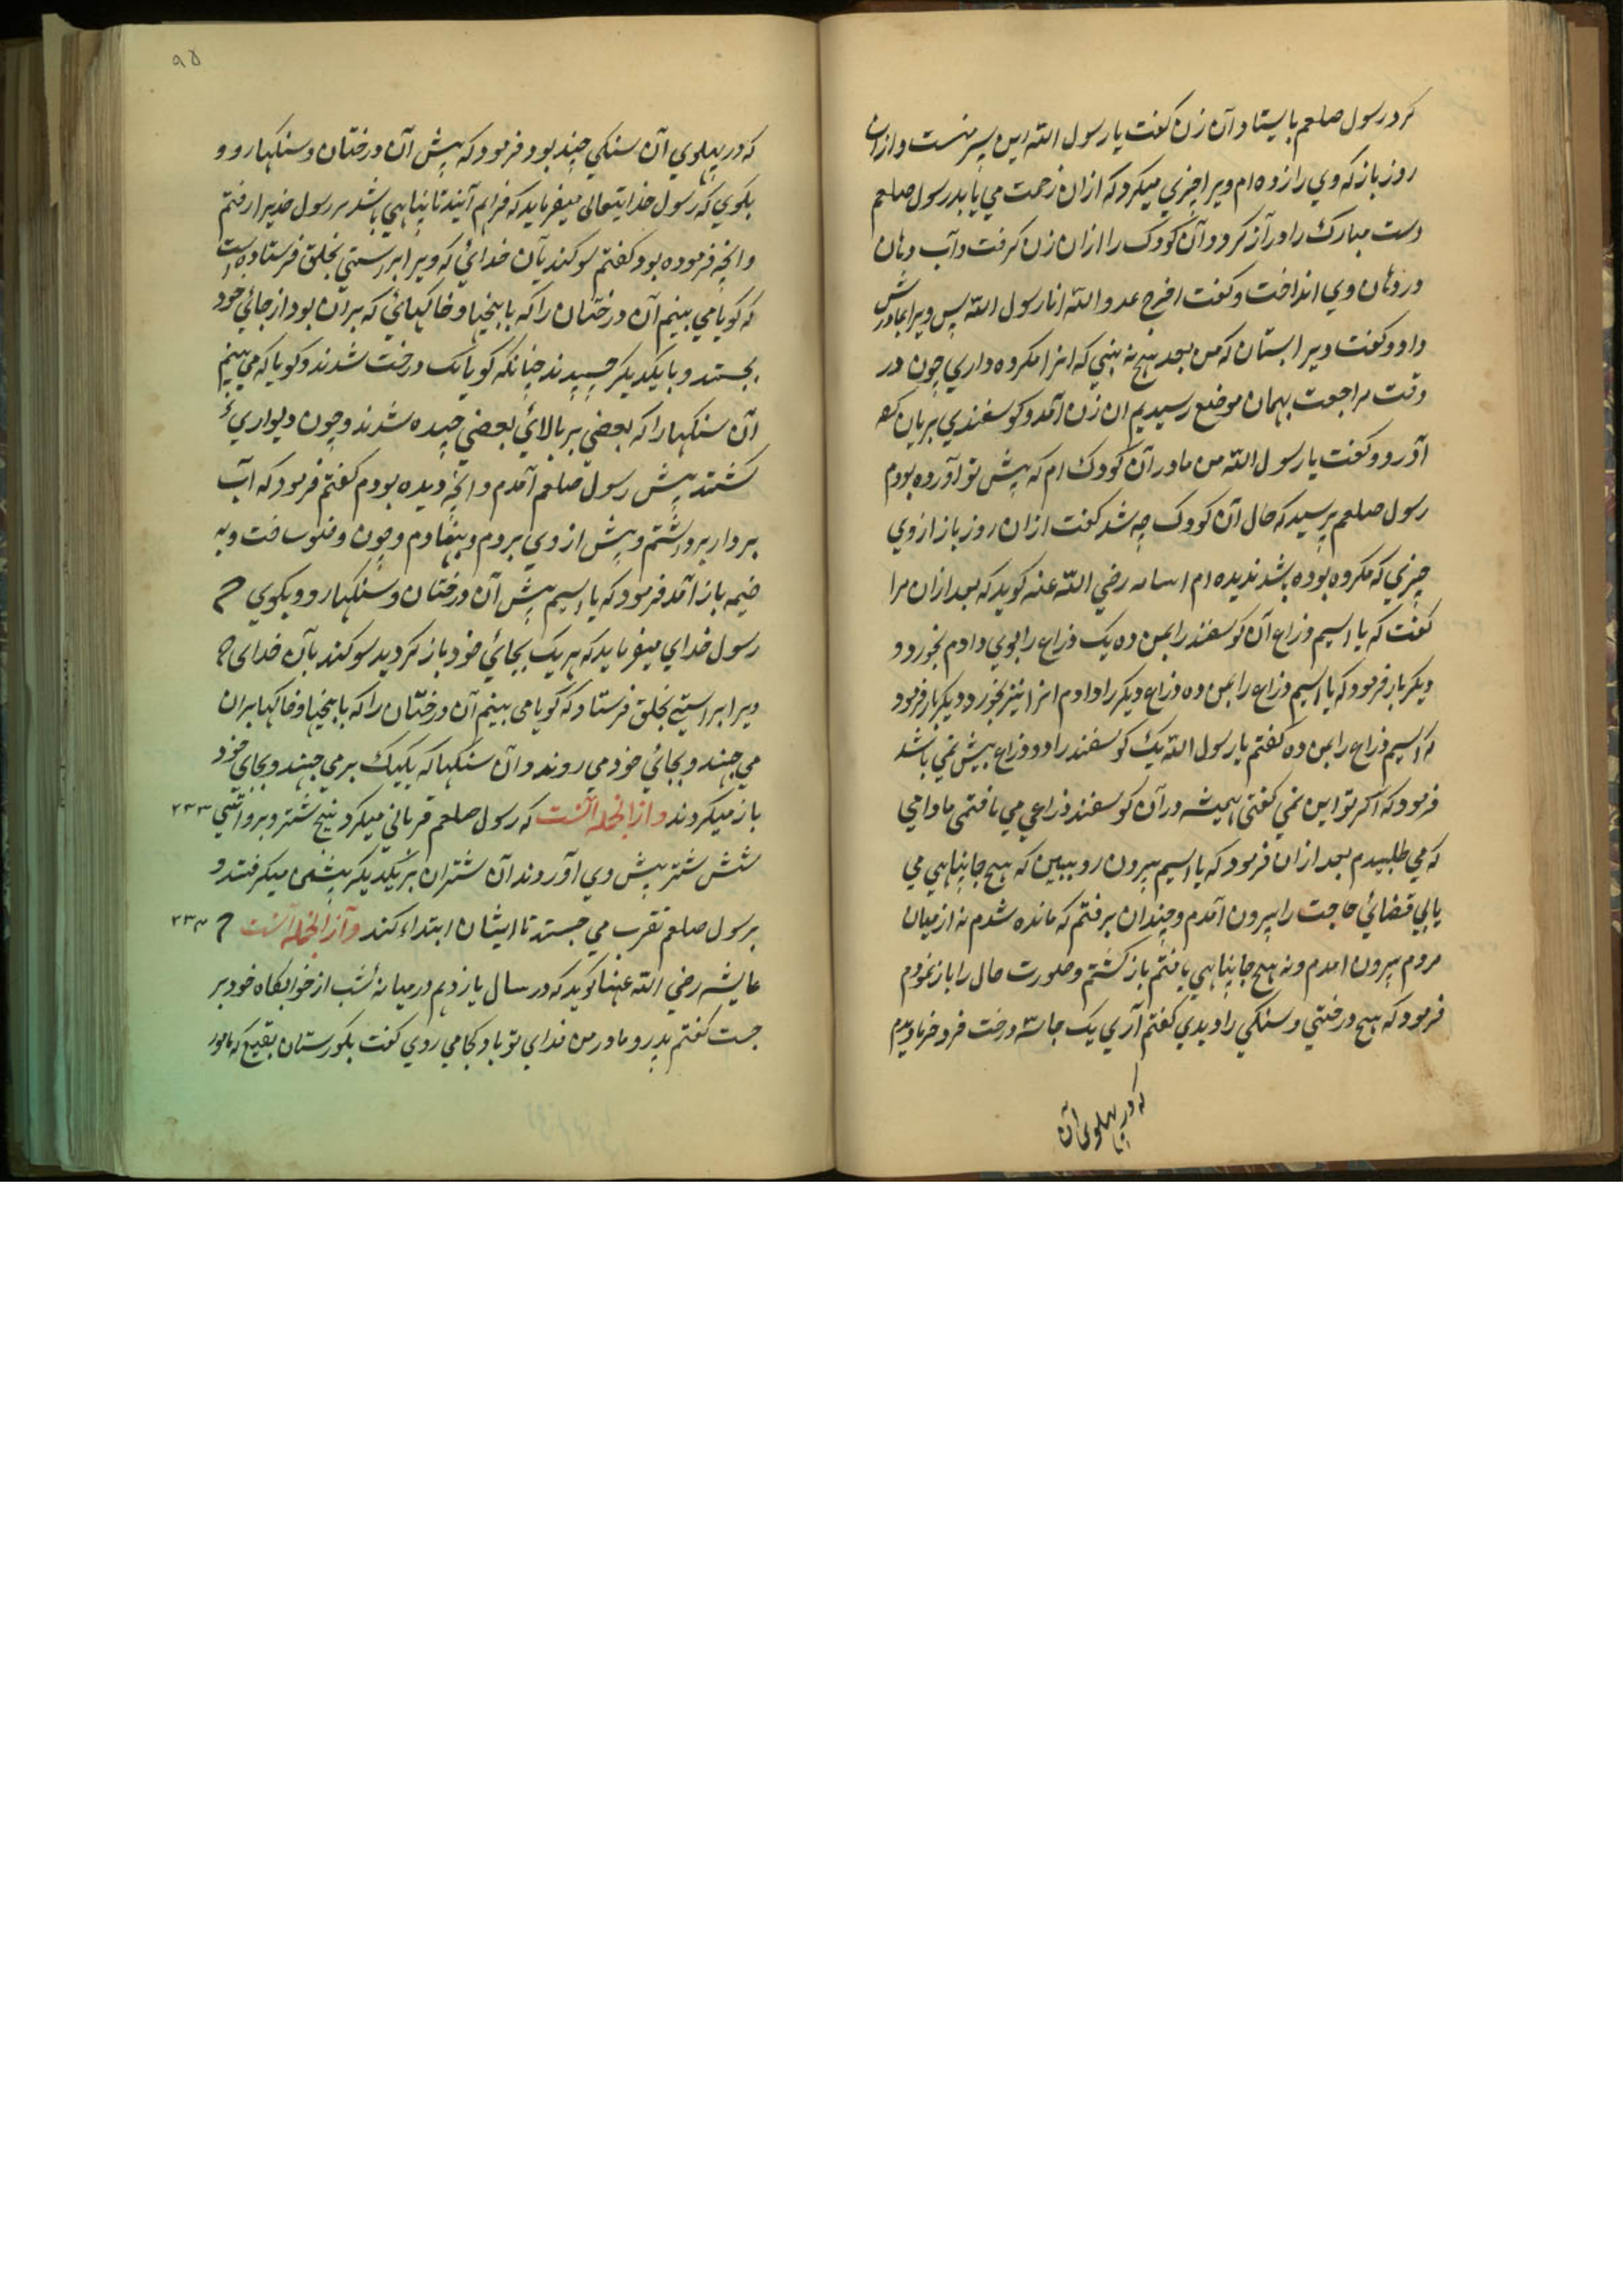 کرد رسول صلعم بایستاد آن زن کفت یا رسول الله این پسر منست و ازان
روز باز که وي را زده ام ویرا چیزي میکیرد که ازان زحمت مي یابد رسول صلعم
دست مبارک را دراز کرد و آن کودک را ازان زن کرفت و آب دهان
در دهان وي انداخت و کفت اخرج عدو الله انا رسول الله پس ویرا بمادرش
داد و کفت ویرا بستان که من بعد هیچ نه بیني که انرا مکروه داري چون در
وقت مراجعت بهمان موضع رسیدیم ان زن آمد و کوسفندي بریان کرده
آورد و کفت یا رسول الله من مادر آن کودک ام که پیش تو آورده بودم
رسول صلعم پرسید که حال آن کودک چه شد کفت ازان روز باز از وي
چیزي که مکروه بوده باشد ندیده ام اسامه رضي الله عنه کوید که بعد ازان مرا
کفت که یا اسیم ذراع آن کوسفند را بمن ده یک ذراع را بوي دادم بخورد و
دیکر بار فرمود که یا اسیم ذراع را بمن ده ذراع دیکر را دادم انرا نیز بخورد و دیکر بار فرمود
که اسیم ذراع را بمن ده کفتم یا رسول الله یک کوسفند را دو ذراع بیش نمي باشد
فرمود که اکر تو این نمي کفتی همیشه در آن کوسفند ذراعي مي یافتمی مادامي
که مي طلبیدم بعد ازان فرمود که یا اسیم بیرون رو ببین که هیچ جا پناهي مي
یابي قضائي حاجت را بیرون آمدم و چندان برفتم که مانده شدم نه از میان
مردم بیرون امدم و نه هیچ جا پناهي یافتم باز کشتم و صورت حال را باز نمودم
فرمود که هیچ درختي و سنکي را دیدي کفتم آري یک جا سه درخت فرد خرما دیدم
که در پهلوی آن
٩۵
که در پهلوي آن سنکي چند بود فرمود که پیش آن درختان و سنکها رو و
بکوي که رسول خدایتعالی میفرماید که فراهم آیند تا پناهي باشد مر رسول خدیرا رفتم
و انچه فرموده بود کفتم سوکند بآن خدائي که ویرا براستي بخلق فرستاده است
که کویا مي بینم آن درختان را که با بیخها و خاکهائي که بران بود از جائي خود
بجستند و با یکدیکر چسپیدند چنانکه کویا یک درخت شدند و کویا که مي بینم
آن سنکها را که بعضي بر بالائي بعضي چیده شدند و چون دیواري
کشتند پیش رسول صلعم آمدم و انچه دیده بودم کفتم فرمود که آب
بردار برداشتم و پیش از وي بردم و بنهادم و چون وضو ساخت و به
خیمه باز آمد فرمود که یا اسیم پیش آن درختان و سنکها رو و بکوي که
رسول خداي میفرماید که هر یک بجائي خود باز کردید سوکند بآن خدای که
ویرا براستي بخلق فرستاد که کویا می بینم آن درختان را که با بیخها و خاکها بران
مي جهند و بجائي خود مي روند و آن سنکها که یکیک بر مي جهند و بجاي خود
باز میکردند و از انجمله آنست که رسول صلعم قرباني میکرد پنج شتر و بروایتي ٢٣٣
شش شتر پیش وي آوردند آن شتران بر یکدیکر پیشی میکرفتند و
برسول صلعم تقرب مي جستند تا ایشان ابتداء کند و از انجمله آنست که ٢٣٤
عایشه رضي الله عنها کوید که در سال یازدهم در میانه شب از خوابکاه خود بر
جست کفتم پدر و مادر من فدای تو باد کجا مي روي کفت بکورستان بقیع که مامور